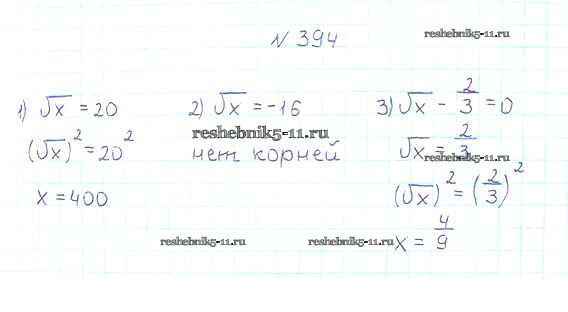 № 394
reshebnik5-11.ru
1) √x = 20
(√x)² = 20²
x = 400
2) √x = -16
reshebnik5-11.ru
нет корней
3) √x - 2/3 = 0
√x = 2/3
reshebnik5-11.ru
(√x)² = (2/3)²
x = 4/9
reshebnik5-11.ru
reshebnik5-11.ru